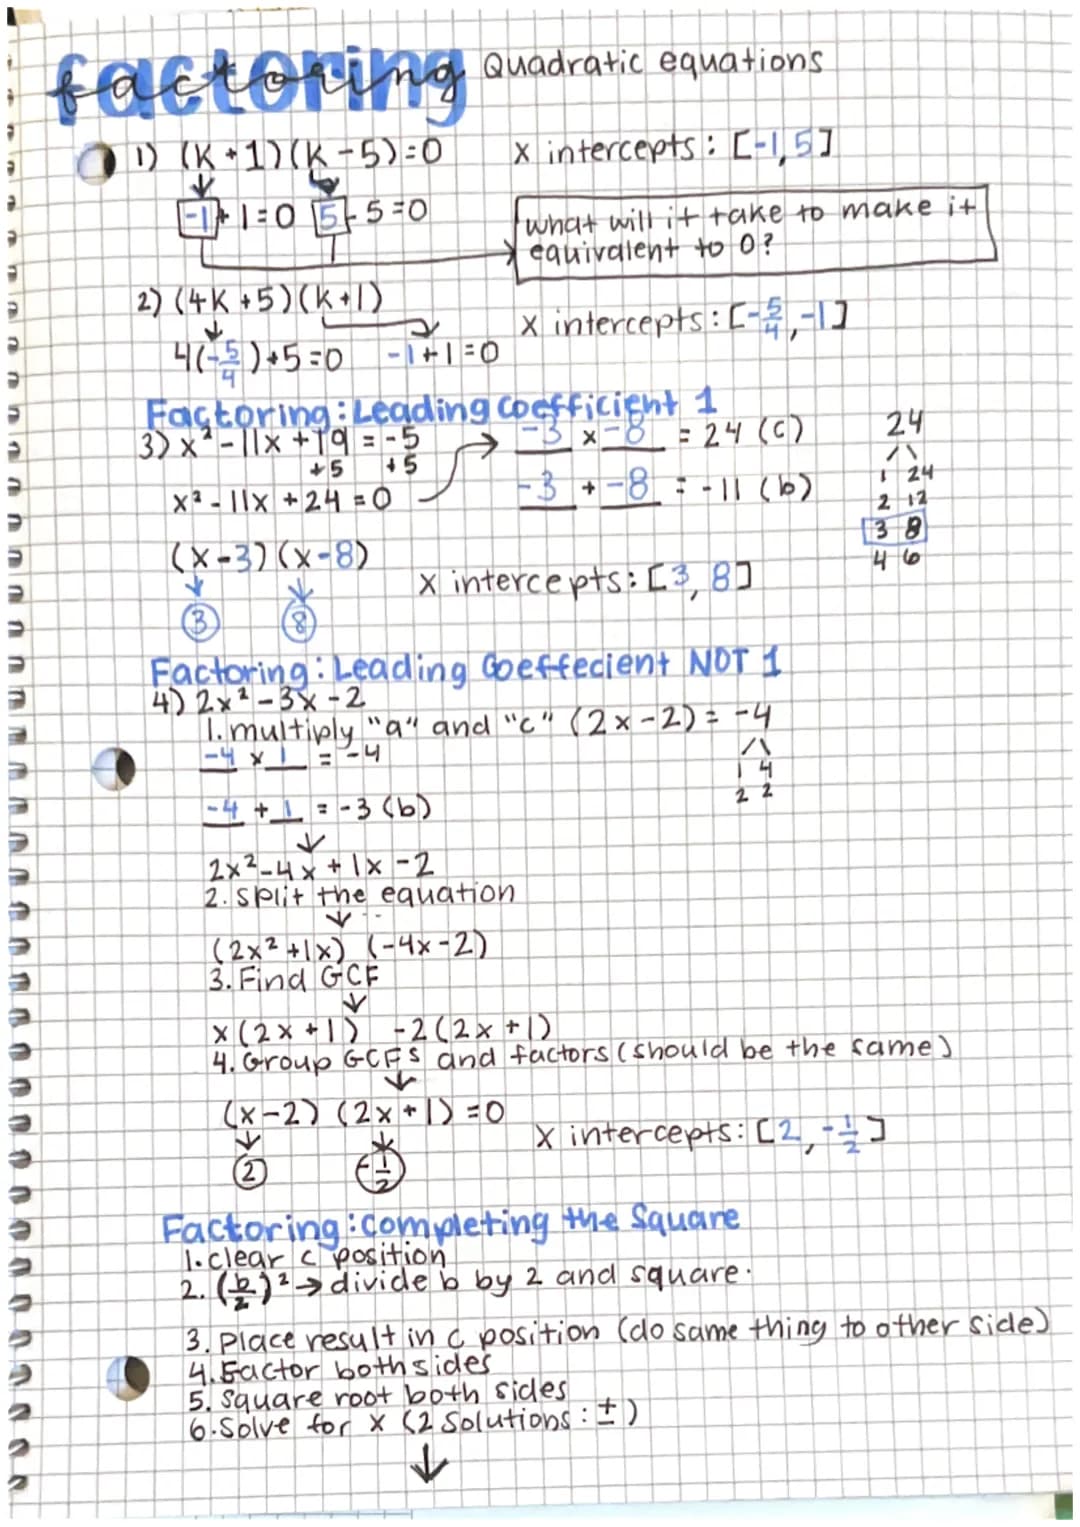 factoring Quadratic equations
1) (K+1)(K-5)=0 x intercepts: [-1,5]
-1+1=0 5-5=0
what will it take to make it
equivalent to 0?
2) (4K+5)(K+1)
x intercepts: [-5/4,-1]
4(-5/4)+5=0 -1+1=0
Factoring: Leading coefficient 1
3) x²-11x+19=-5 -3 x -8 = 24 (c) 24
+5 +5
1 24
x²-11x+24=0 -3 + -8 = -11 (b)
2 12
3 8
4 6
(x-3)(x-8)
x intercepts: [3,8]
3 8
Factoring: Leading Coeffecient NOT 1
4) 2x²-3x-2
1. multiply "a" and "c" (2x-2)= -4
-4 x 1 = -4
1 4
2 2
-4 + 1 = -3 (b)
2x²-4x+1x-2
2. split the equation
(2x²+1x) (-4x-2)
3. Find GCF
x(2x+1) -2(2x+1)
4. Group GCFs and factors (should be the same)
(x-2) (2x+1)=0
x intercepts: [2,-1/2]
2 -1/2
Factoring: completing the Square
1. clear c position
2. (b/2)² → divide b by 2 and square.
3. Place result in c position (do same thing to other side)
4. Factor both sides
5. Square root both sides
6. Solve for x (2 Solutions: ±)